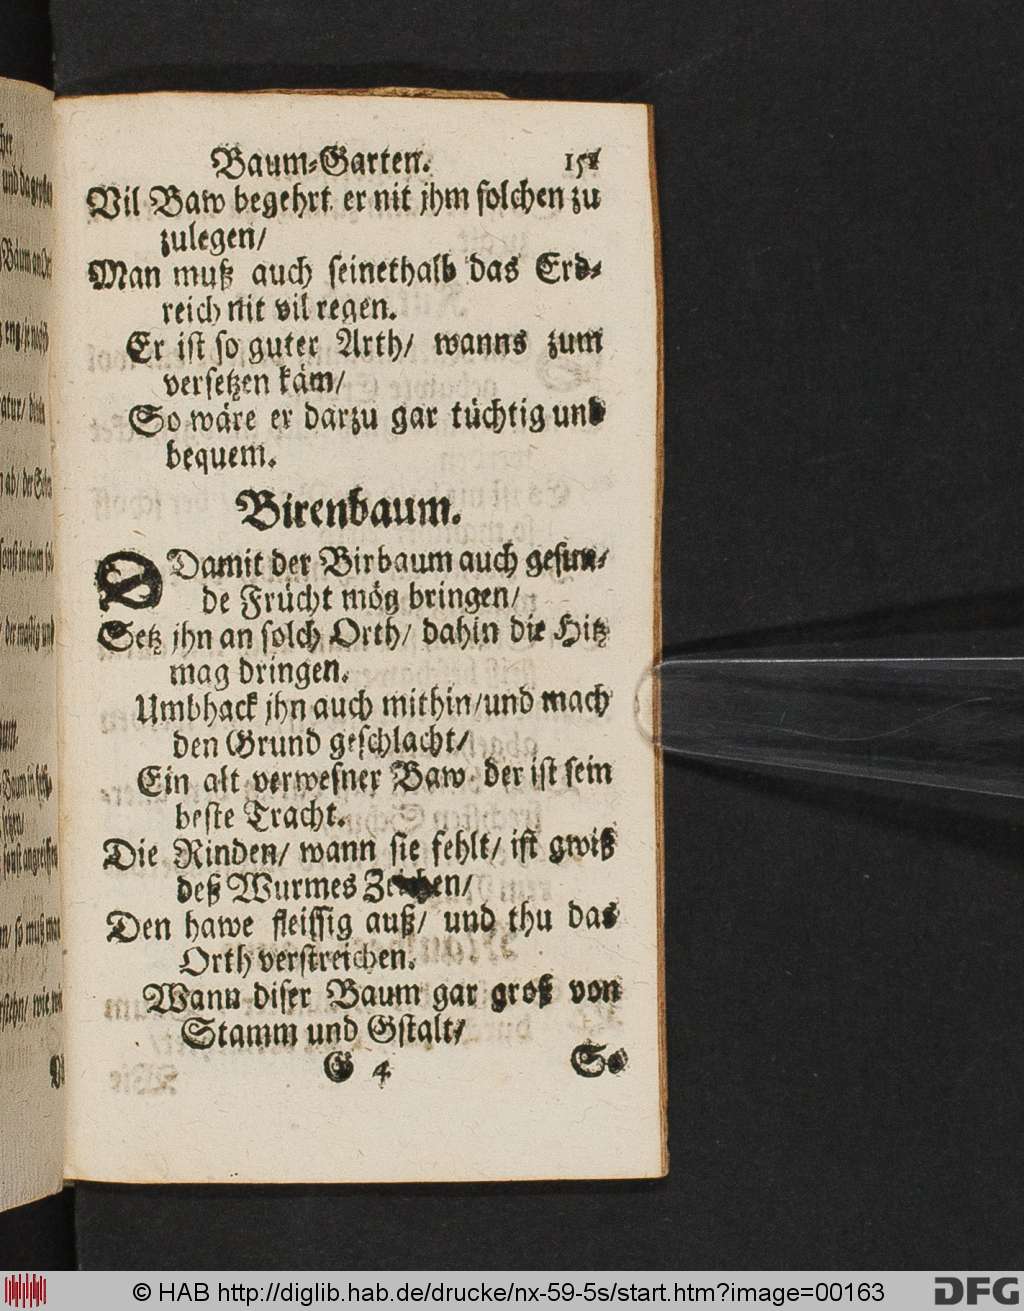 Baum-Garten. 151
Vil Baw begehrt er nit jhm solchen zu
zulegen/
Man muß auch seinethalb das Erd-
reich nit vil regen.
Er ist so guter Arth/ wanns zum
versetzen käm/
So wäre er darzu gar tüchtig und
bequem.
Birenbaum.
Damit der Birbaum auch gesun-
de Frücht mög bringen/
Setz jhn an solch Orth/ dahin die Hitz
mag dringen.
Umbhack jhn auch mithin/ und mach
den Grund geschlacht/
Ein alt verwesner Baw der ist sein
beste Tracht.
Die Rinden/ wann sie fehlt/ ist gwiß
deß Wurmes Zeichen/
Den hawe fleissig auß/ und thu das
Orth verstreichen.
Wann diser Baum gar groß von
Stamm und Gstalt/
G 4 So
© HAB http://diglib.hab.de/drucke/nx-59-5s/start.htm?image=00163
DFG